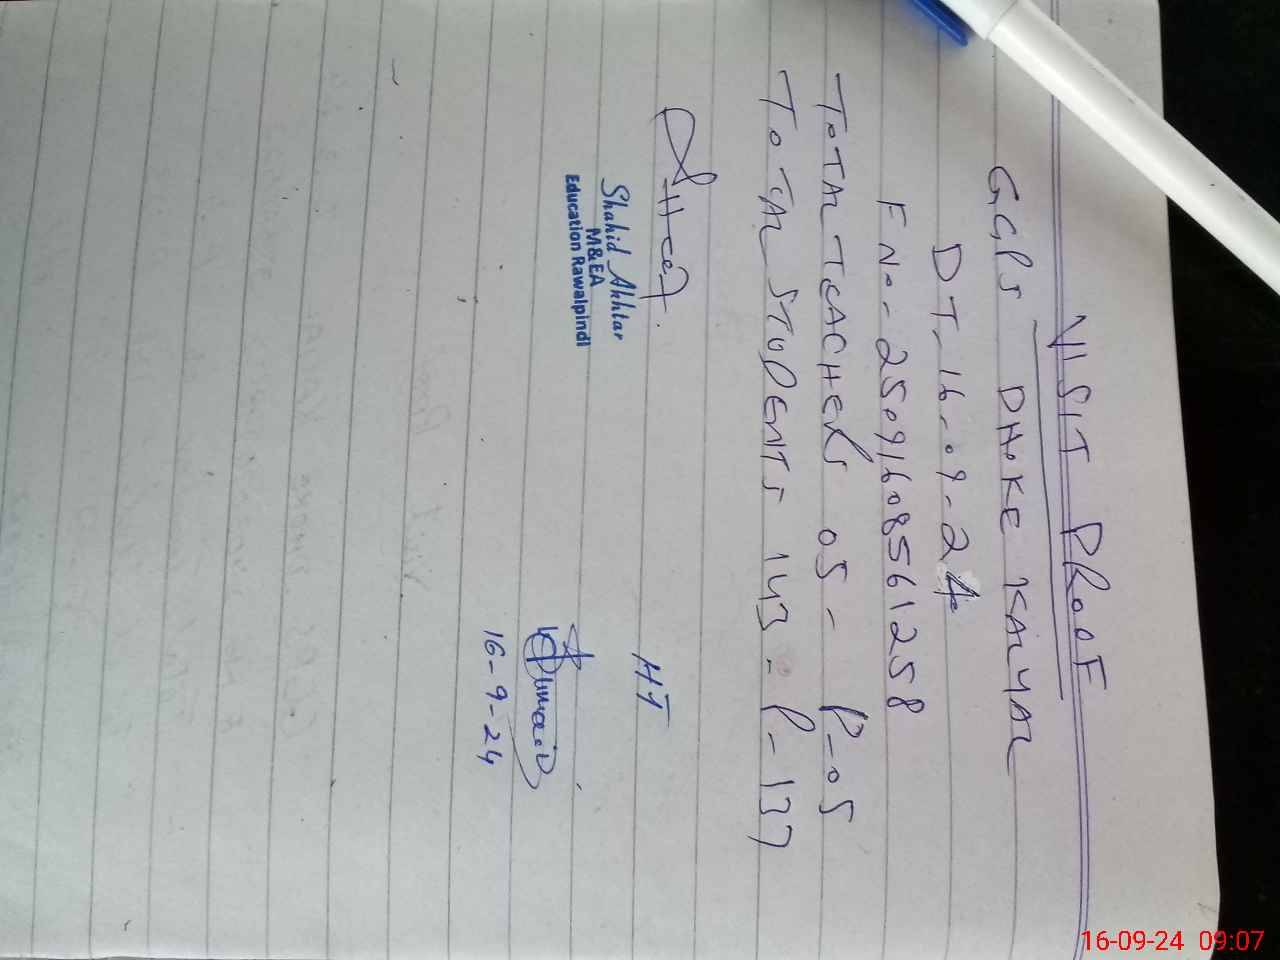 VISIT PROOF
GGPS DHOKE KALYAL
DT-16-09-24
F No- 25091608561258
TOTAL TEACHERS 05- P-05
TOTAL STUDENTS 143- P-137
Shahid Akhtar
M&EA
Education Rawalpindi
HT
16-9-24
16-09-24 09:07